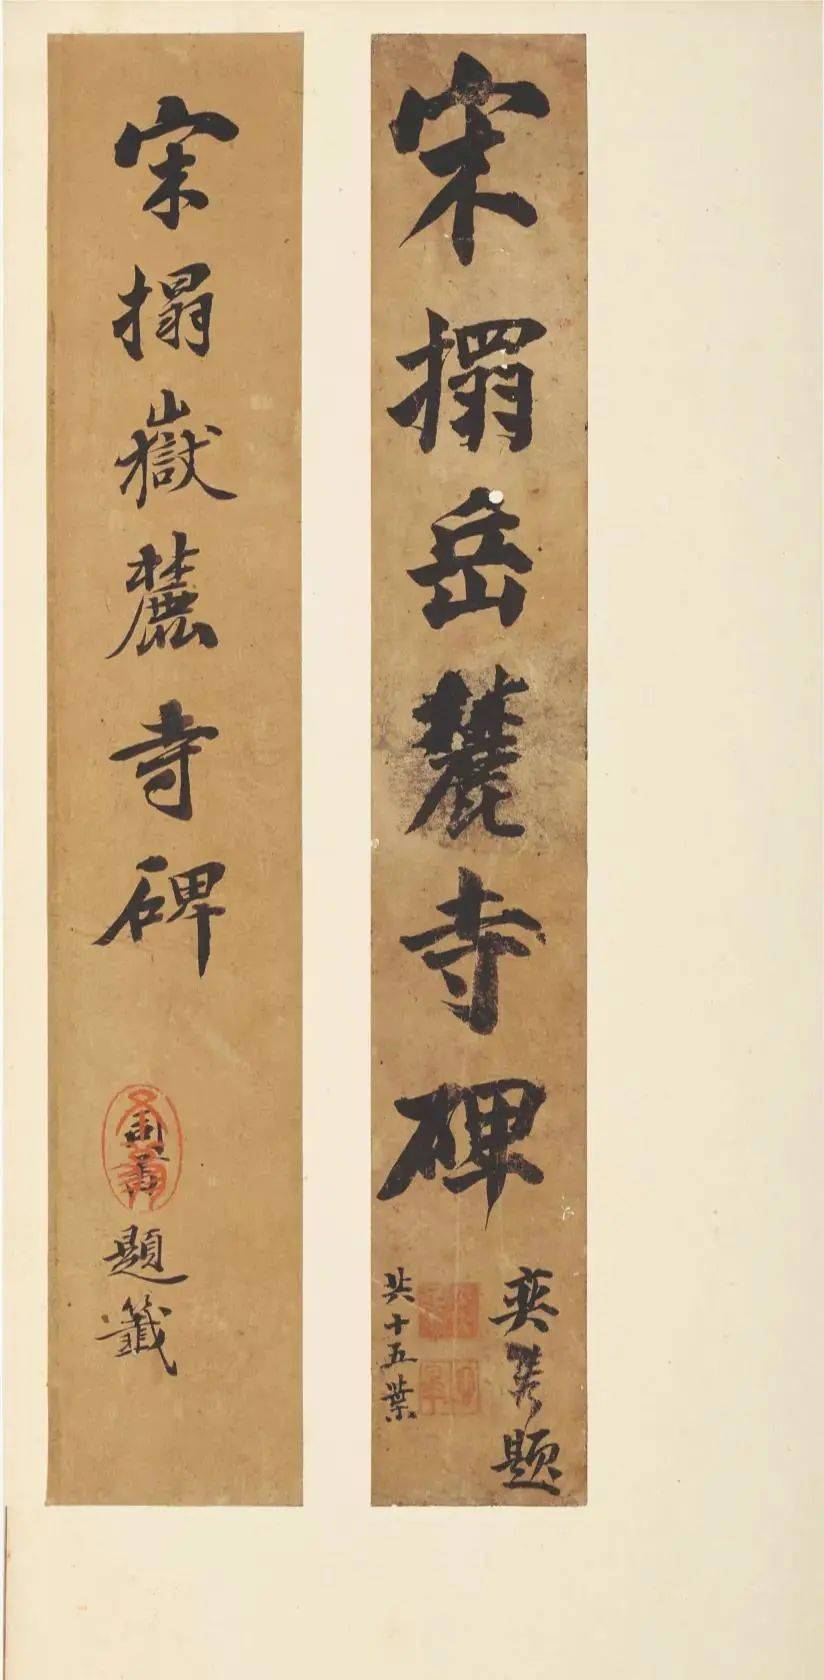 宋搨岳麓寺碑
奕題
共十五葉
宋搨嶽麓寺碑
題籤